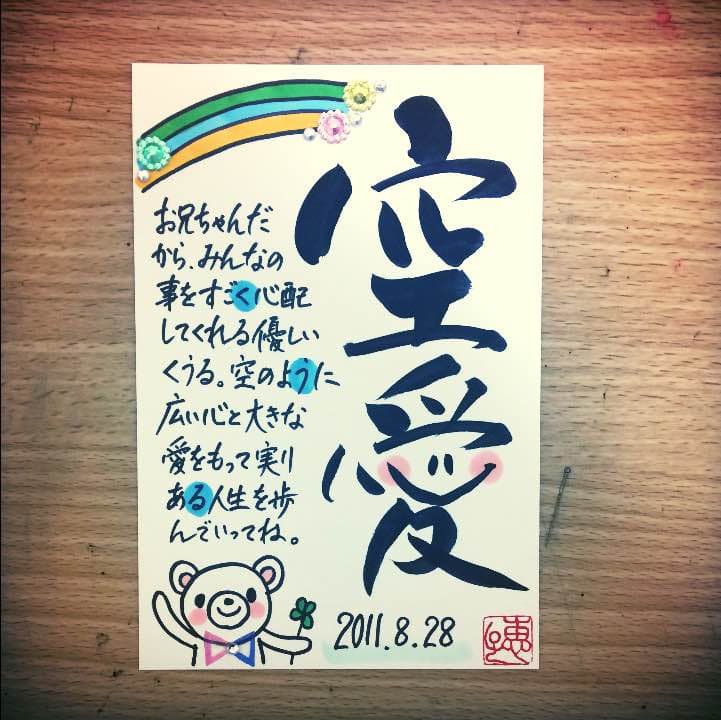 空愛
お兄ちゃんだ
から、みんなの
事をすごく心配
してくれる優しい
くうる。空のように
広い心と大きな
愛をもって実り
ある人生を歩
んでいってね。
2011.8.28